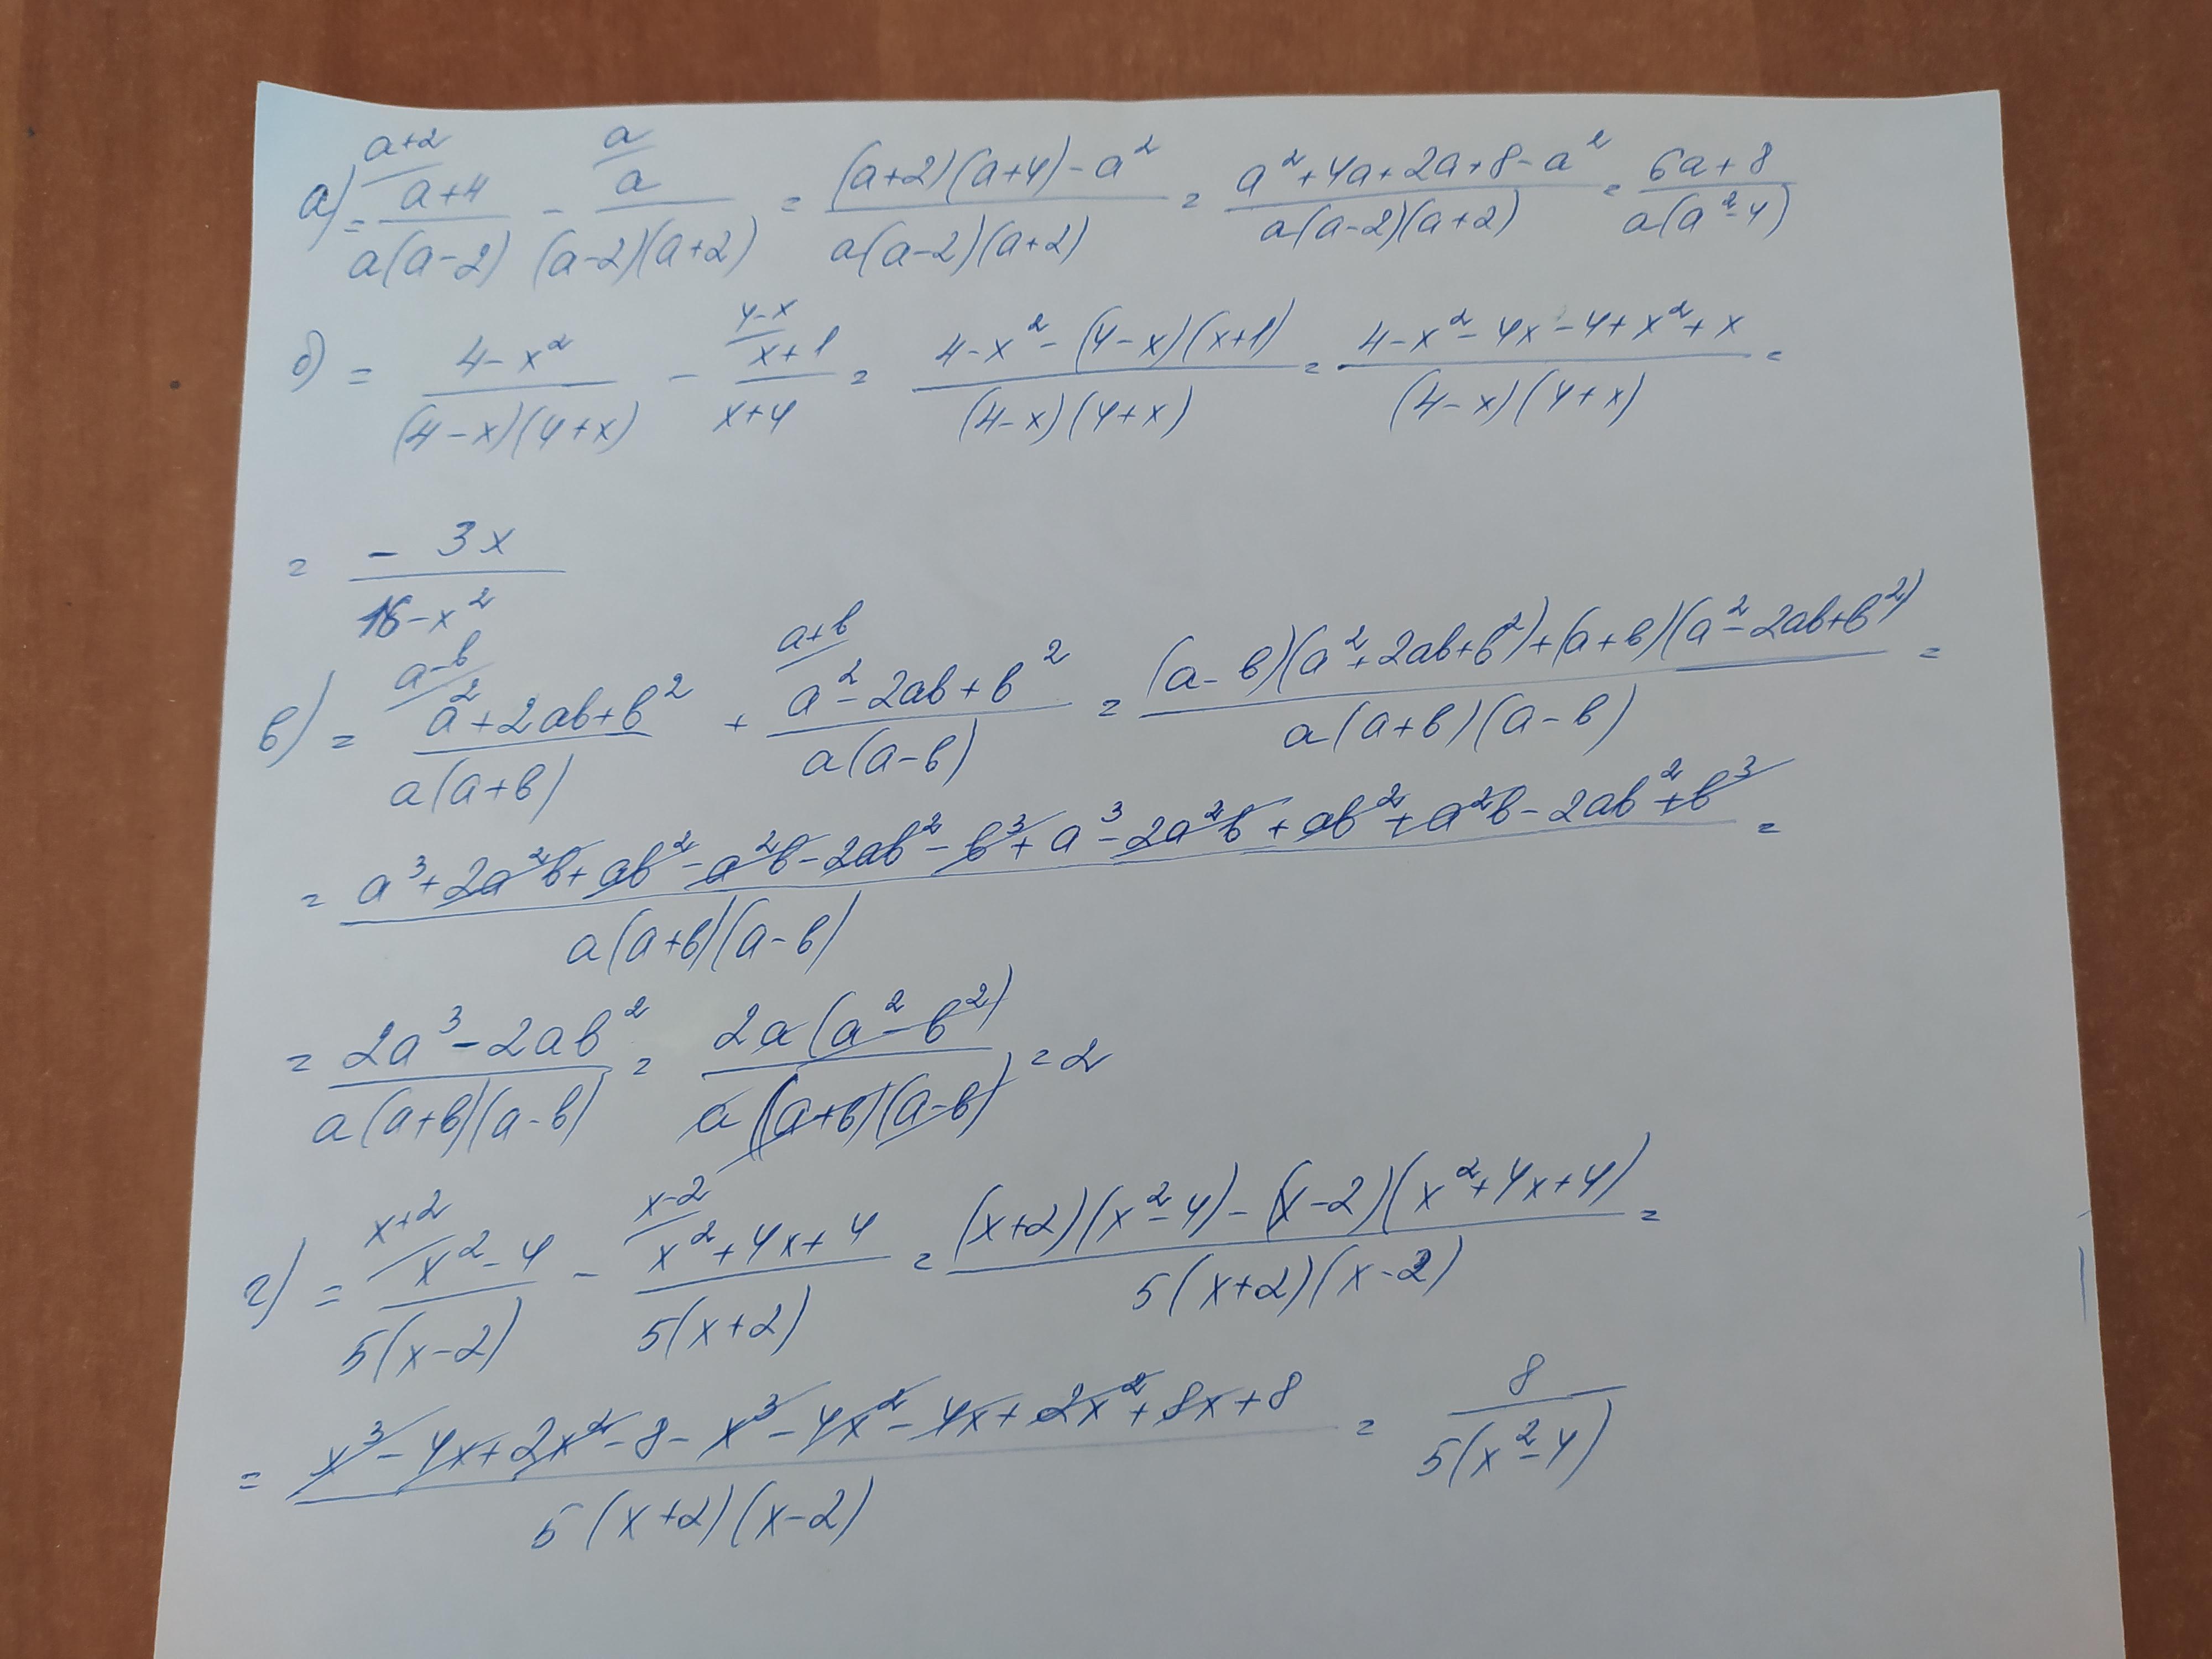 а) = a+2/ a+4 / a(a-2) - a/ a / (a-2)(a+2) = (a+2)(a+4)-a² / a(a-2)(a+2) = a²+4a+2a+8-a² / a(a-2)(a+2) = 6a+8 / a(a²-4)
б) = 4-x² / (4-x)(4+x) - 4-x/ x+1 / x+4 = 4-x²-(4-x)(x+1) / (4-x)(4+x) = 4-x²-4x-4+x²+x / (4-x)(4+x) =
= -3x / 16-x²
в) = a-b/ a²+2ab+b² / a(a+b) + a+b/ a²-2ab+b² / a(a-b) = (a-b)(a²+2ab+b²)+(a+b)(a²-2ab+b²) / a(a+b)(a-b) =
= a³+2a²b+ab²-a²b-2ab²-b³+a³-2a²b+ab²+a²b-2ab²+b³ / a(a+b)(a-b) =
= 2a³-2ab² / a(a+b)(a-b) = 2a(a²-b²) / a(a+b)(a-b) = 2
г) = x+2/ x²-4 / 5(x-2) - x-2/ x²+4x+4 / 5(x+2) = (x+2)(x²-4)-(x-2)(x²+4x+4) / 5(x+2)(x-2) =
= x³-4x+2x²-8-x³-4x²-4x+2x²+8x+8 / 5(x+2)(x-2) = 8 / 5(x²-4)